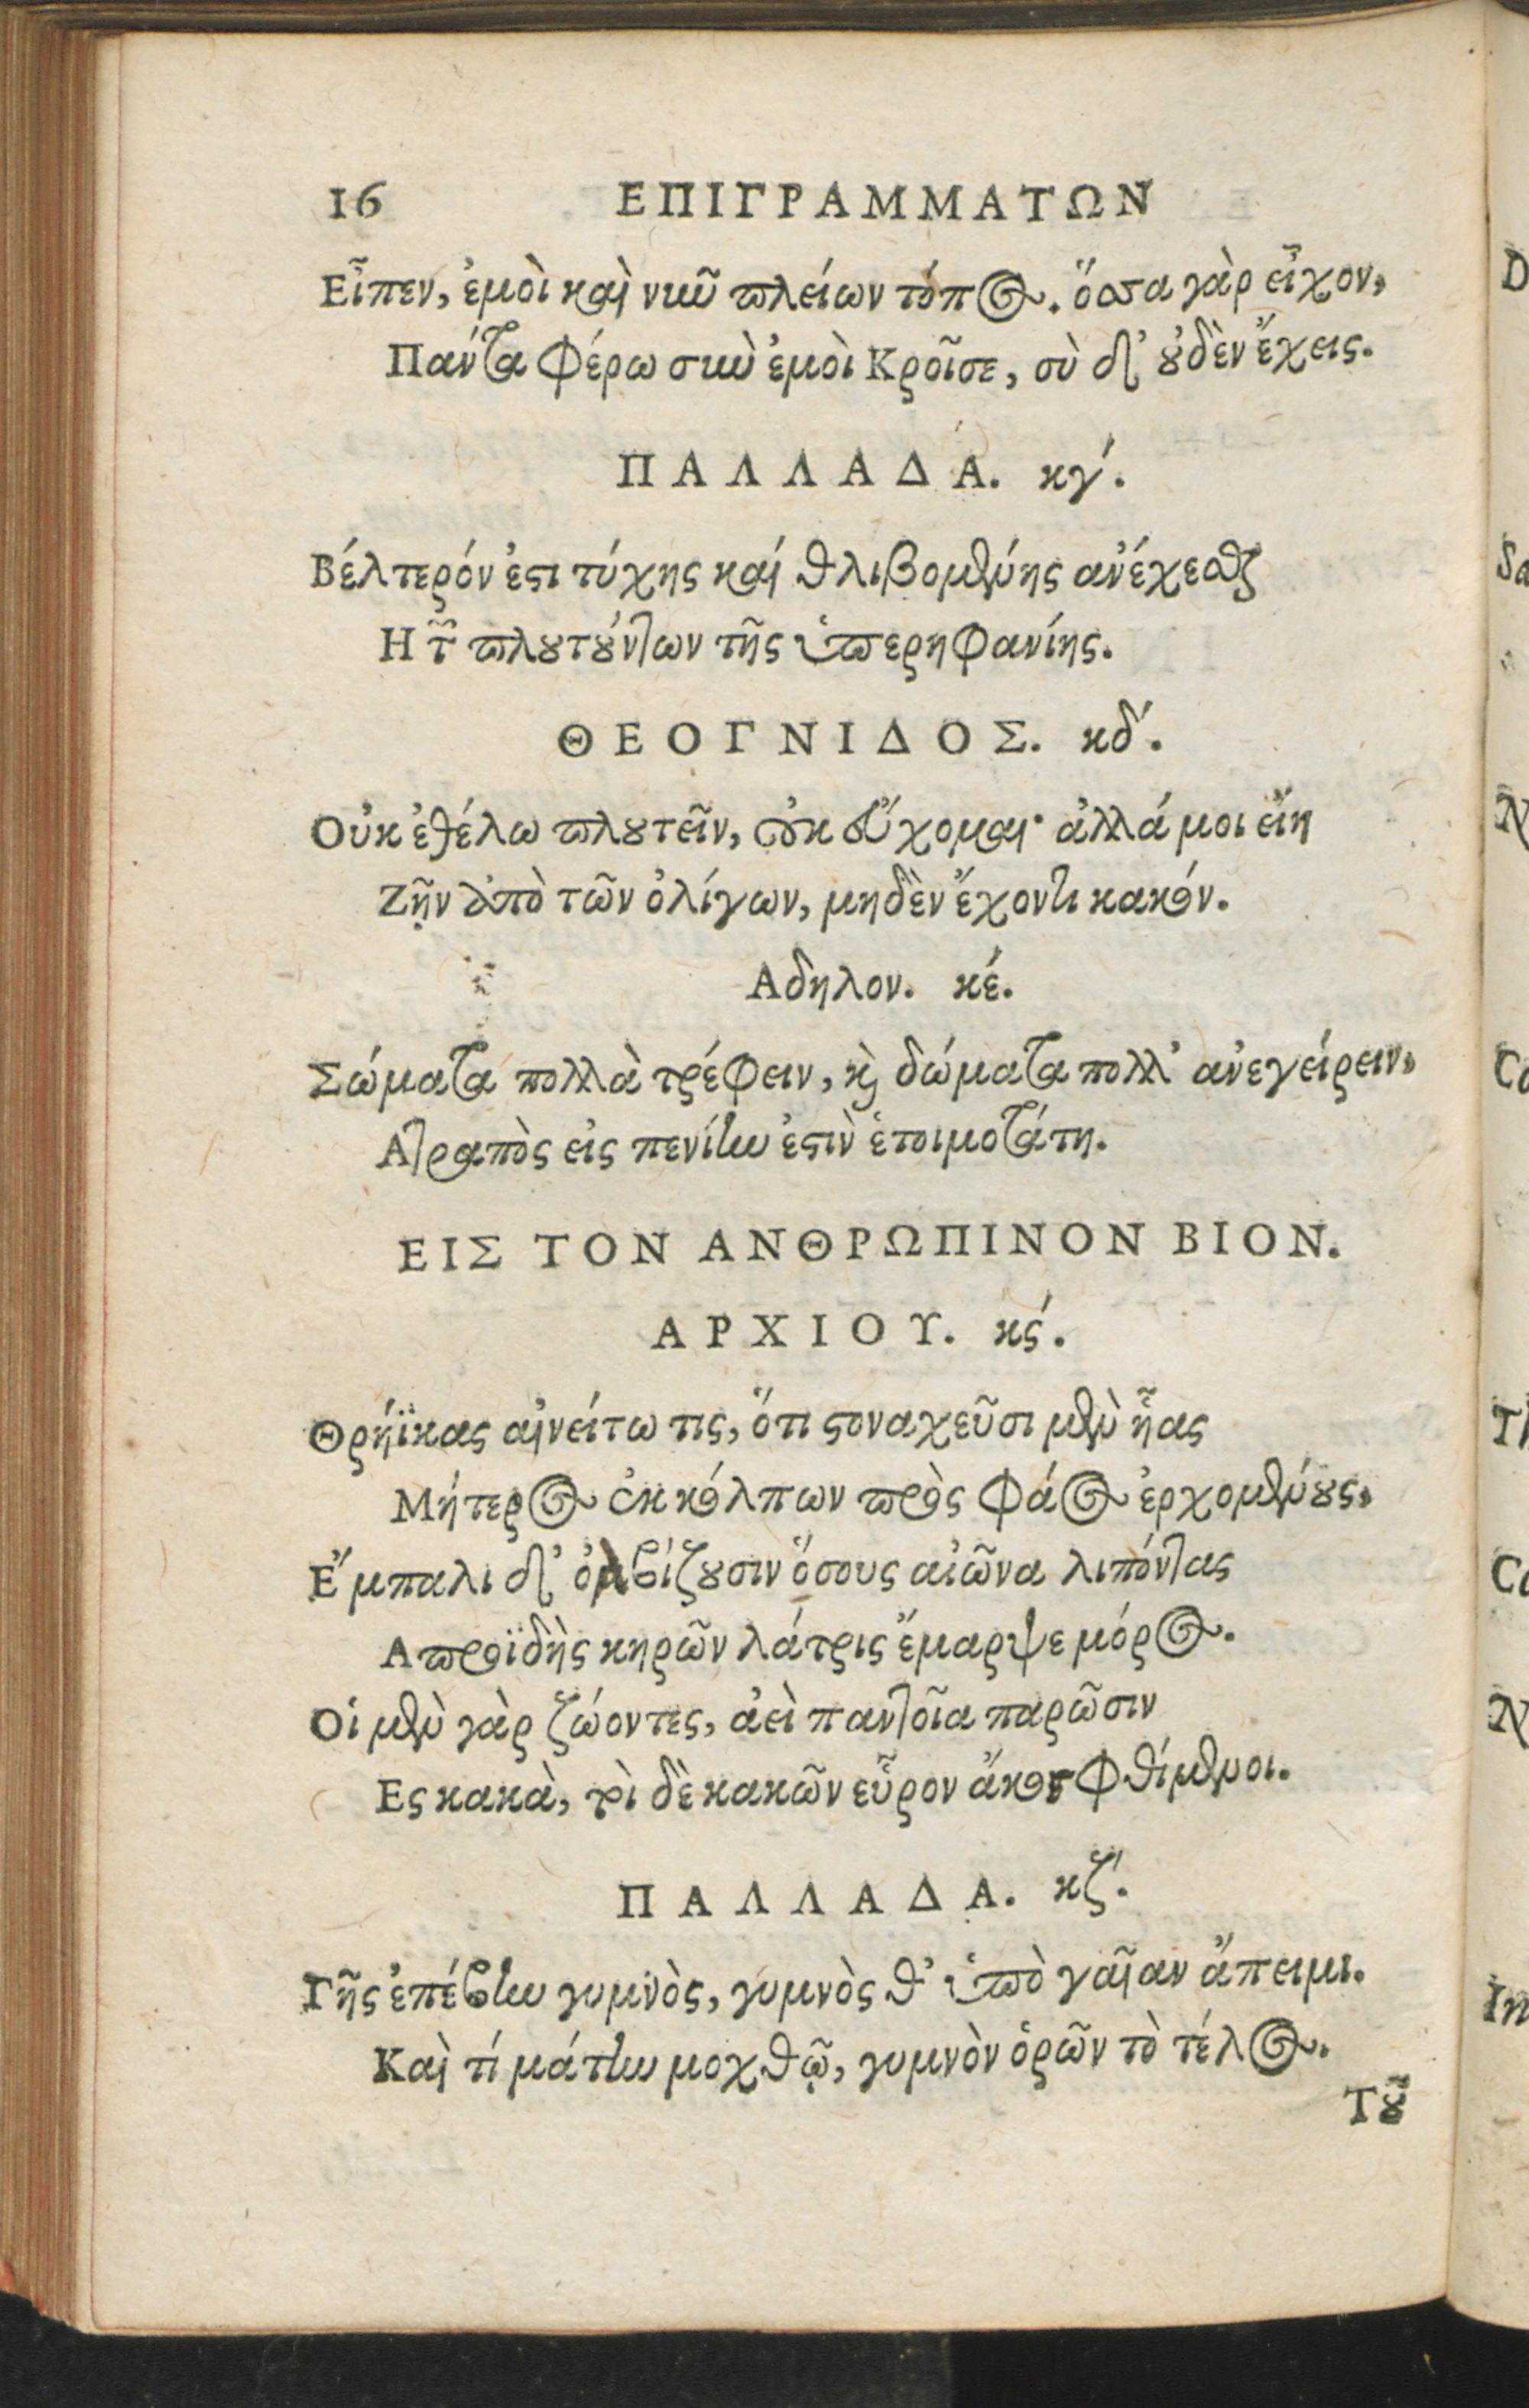 16 ΕΠΙΓΡΑΜΜΑΤΩΝ
Εἶπεν, ἐμοὶ καὶ νῦν πλείων τόπος. ὅσσα γὰρ εἶχον,
Πάντα φέρω σὺν ἐμοὶ Κροῖσε, σὺ δ' οὐδὲν ἔχεις.
ΠΑΛΛΑΔΑ. κγ́.
Βέλτερόν ἐστι τύχης καὶ θλιβομένης ἀνέχεσθαι
Η τῶν πλουτούντων τῆς ὑπερηφανίης.
ΘΕΟΓΝΙΔΟΣ. κδ́.
Οὐκ ἐθέλω πλουτεῖν, οὐκ εὔχομαι· ἀλλά μοι εἴη
Ζῇν ἀπὸ τῶν ὀλίγων, μηδὲν ἔχοντι κακόν.
Αδηλον. κέ.
Σώματα πολλὰ τρέφειν, καὶ δώματα πολλ' ἀνεγείρειν,
Ατραπὸς εἰς πενίην ἐστὶν ἑτοιμοτάτη.
ΕΙΣ ΤΟΝ ΑΝΘΡΩΠΙΝΟΝ ΒΙΟΝ.
ΑΡΧΙΟΥ. κϛ́.
Θρήϊκας αἰνείτω τις, ὅτι στοναχεῦσι μὲν ἧας
Μήτερος ἐκ κόλπων πρὸς φάος ἐρχομένους,
Ε῎μπαλι δ' ὀλβίζουσιν ὅσους αἰῶνα λιπόντας
Απροϊδὴς κηρῶν λάτρις ἔμαρψε μόρος.
Οἱ μὲν γὰρ ζώοντες, ἀεὶ παντοῖα παρῶσιν
Ες κακὰ, τοὶ δὲ κακῶν εὗρον ἄκος φθίμενοι.
ΠΑΛΛΑΔΑ. κζ́.
Γῆς ἐπέβην γυμνὸς, γυμνὸς θ' ὑπὸ γαῖαν ἄπειμι.
Καὶ τί μάτην μοχθῶ, γυμνὸν ὁρῶν τὸ τέλος.
Τοῦ